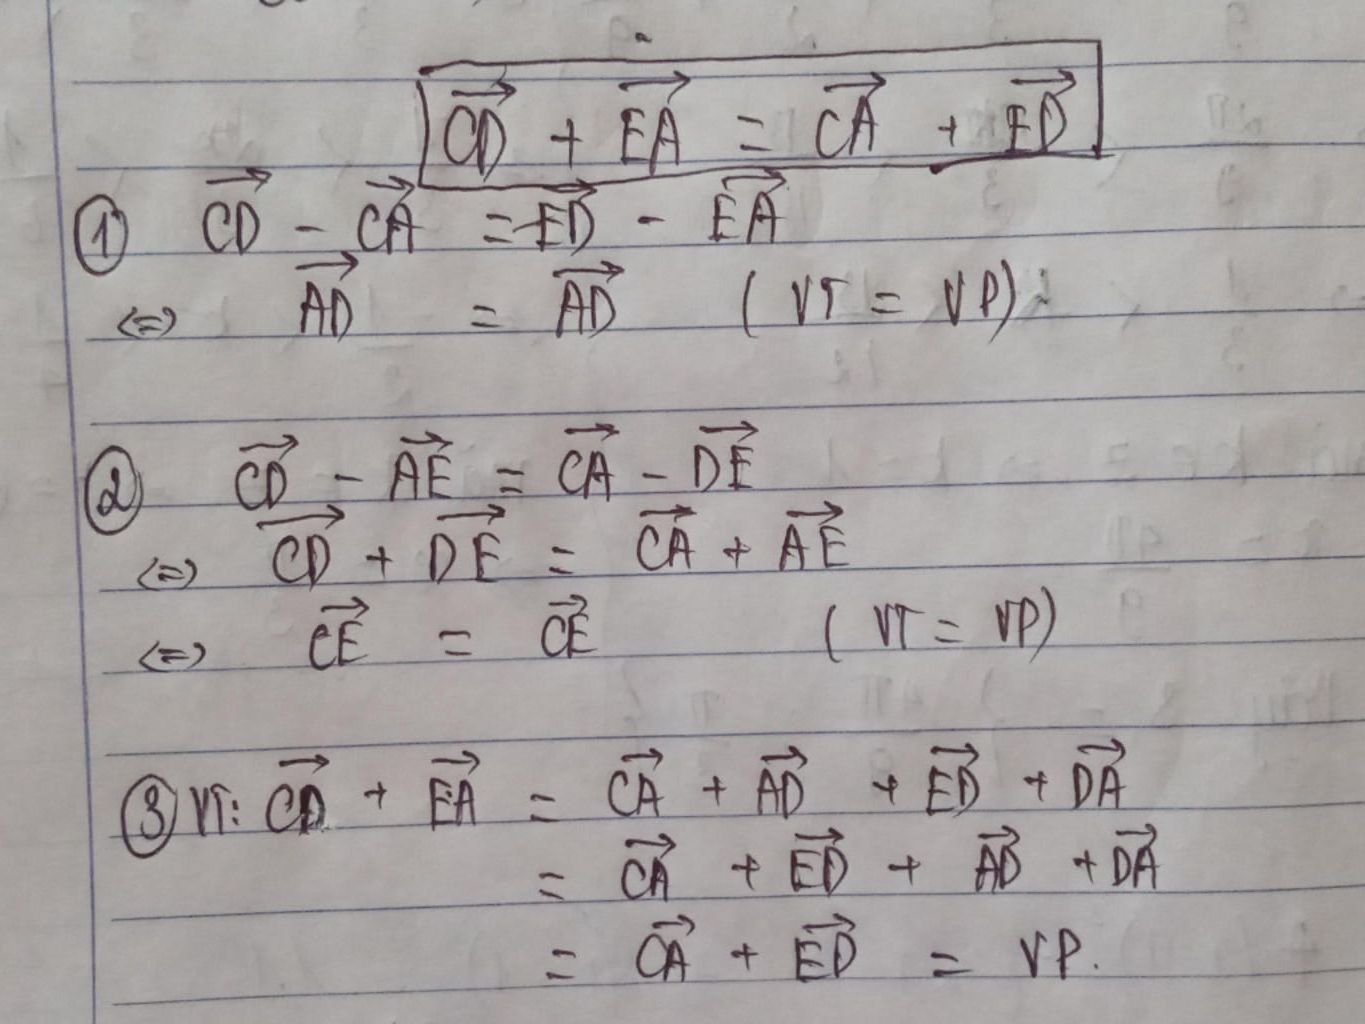 $\overrightarrow{CD} + \overrightarrow{EA} = \overrightarrow{CA} + \overrightarrow{ED}$
① $\overrightarrow{CD} - \overrightarrow{CA} = \overrightarrow{ED} - \overrightarrow{EA}$
<=> $\overrightarrow{AD} = \overrightarrow{AD}$ (VT = VP)
② $\overrightarrow{CD} - \overrightarrow{AE} = \overrightarrow{CA} - \overrightarrow{DE}$
<=> $\overrightarrow{CD} + \overrightarrow{DE} = \overrightarrow{CA} + \overrightarrow{AE}$
<=> $\overrightarrow{CE} = \overrightarrow{CE}$ (VT = VP)
③ VT: $\overrightarrow{CD} + \overrightarrow{EA} = \overrightarrow{CA} + \overrightarrow{AD} + \overrightarrow{ED} + \overrightarrow{DA}$
= $\overrightarrow{CA} + \overrightarrow{ED} + \overrightarrow{AD} + \overrightarrow{DA}$
= $\overrightarrow{CA} + \overrightarrow{ED}$ = VP.